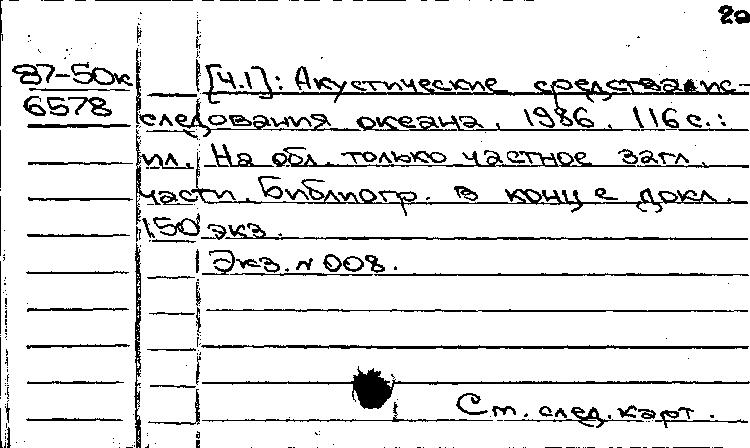 20
87-50к [Ч.1]: Акустические средства ис-
6578 следования океана. 1986. 116 с.:
ил. На обл. только частное загл.
части. Библиогр. в конце докл.
150 экз.
Экз. N 008.
См. след. карт.